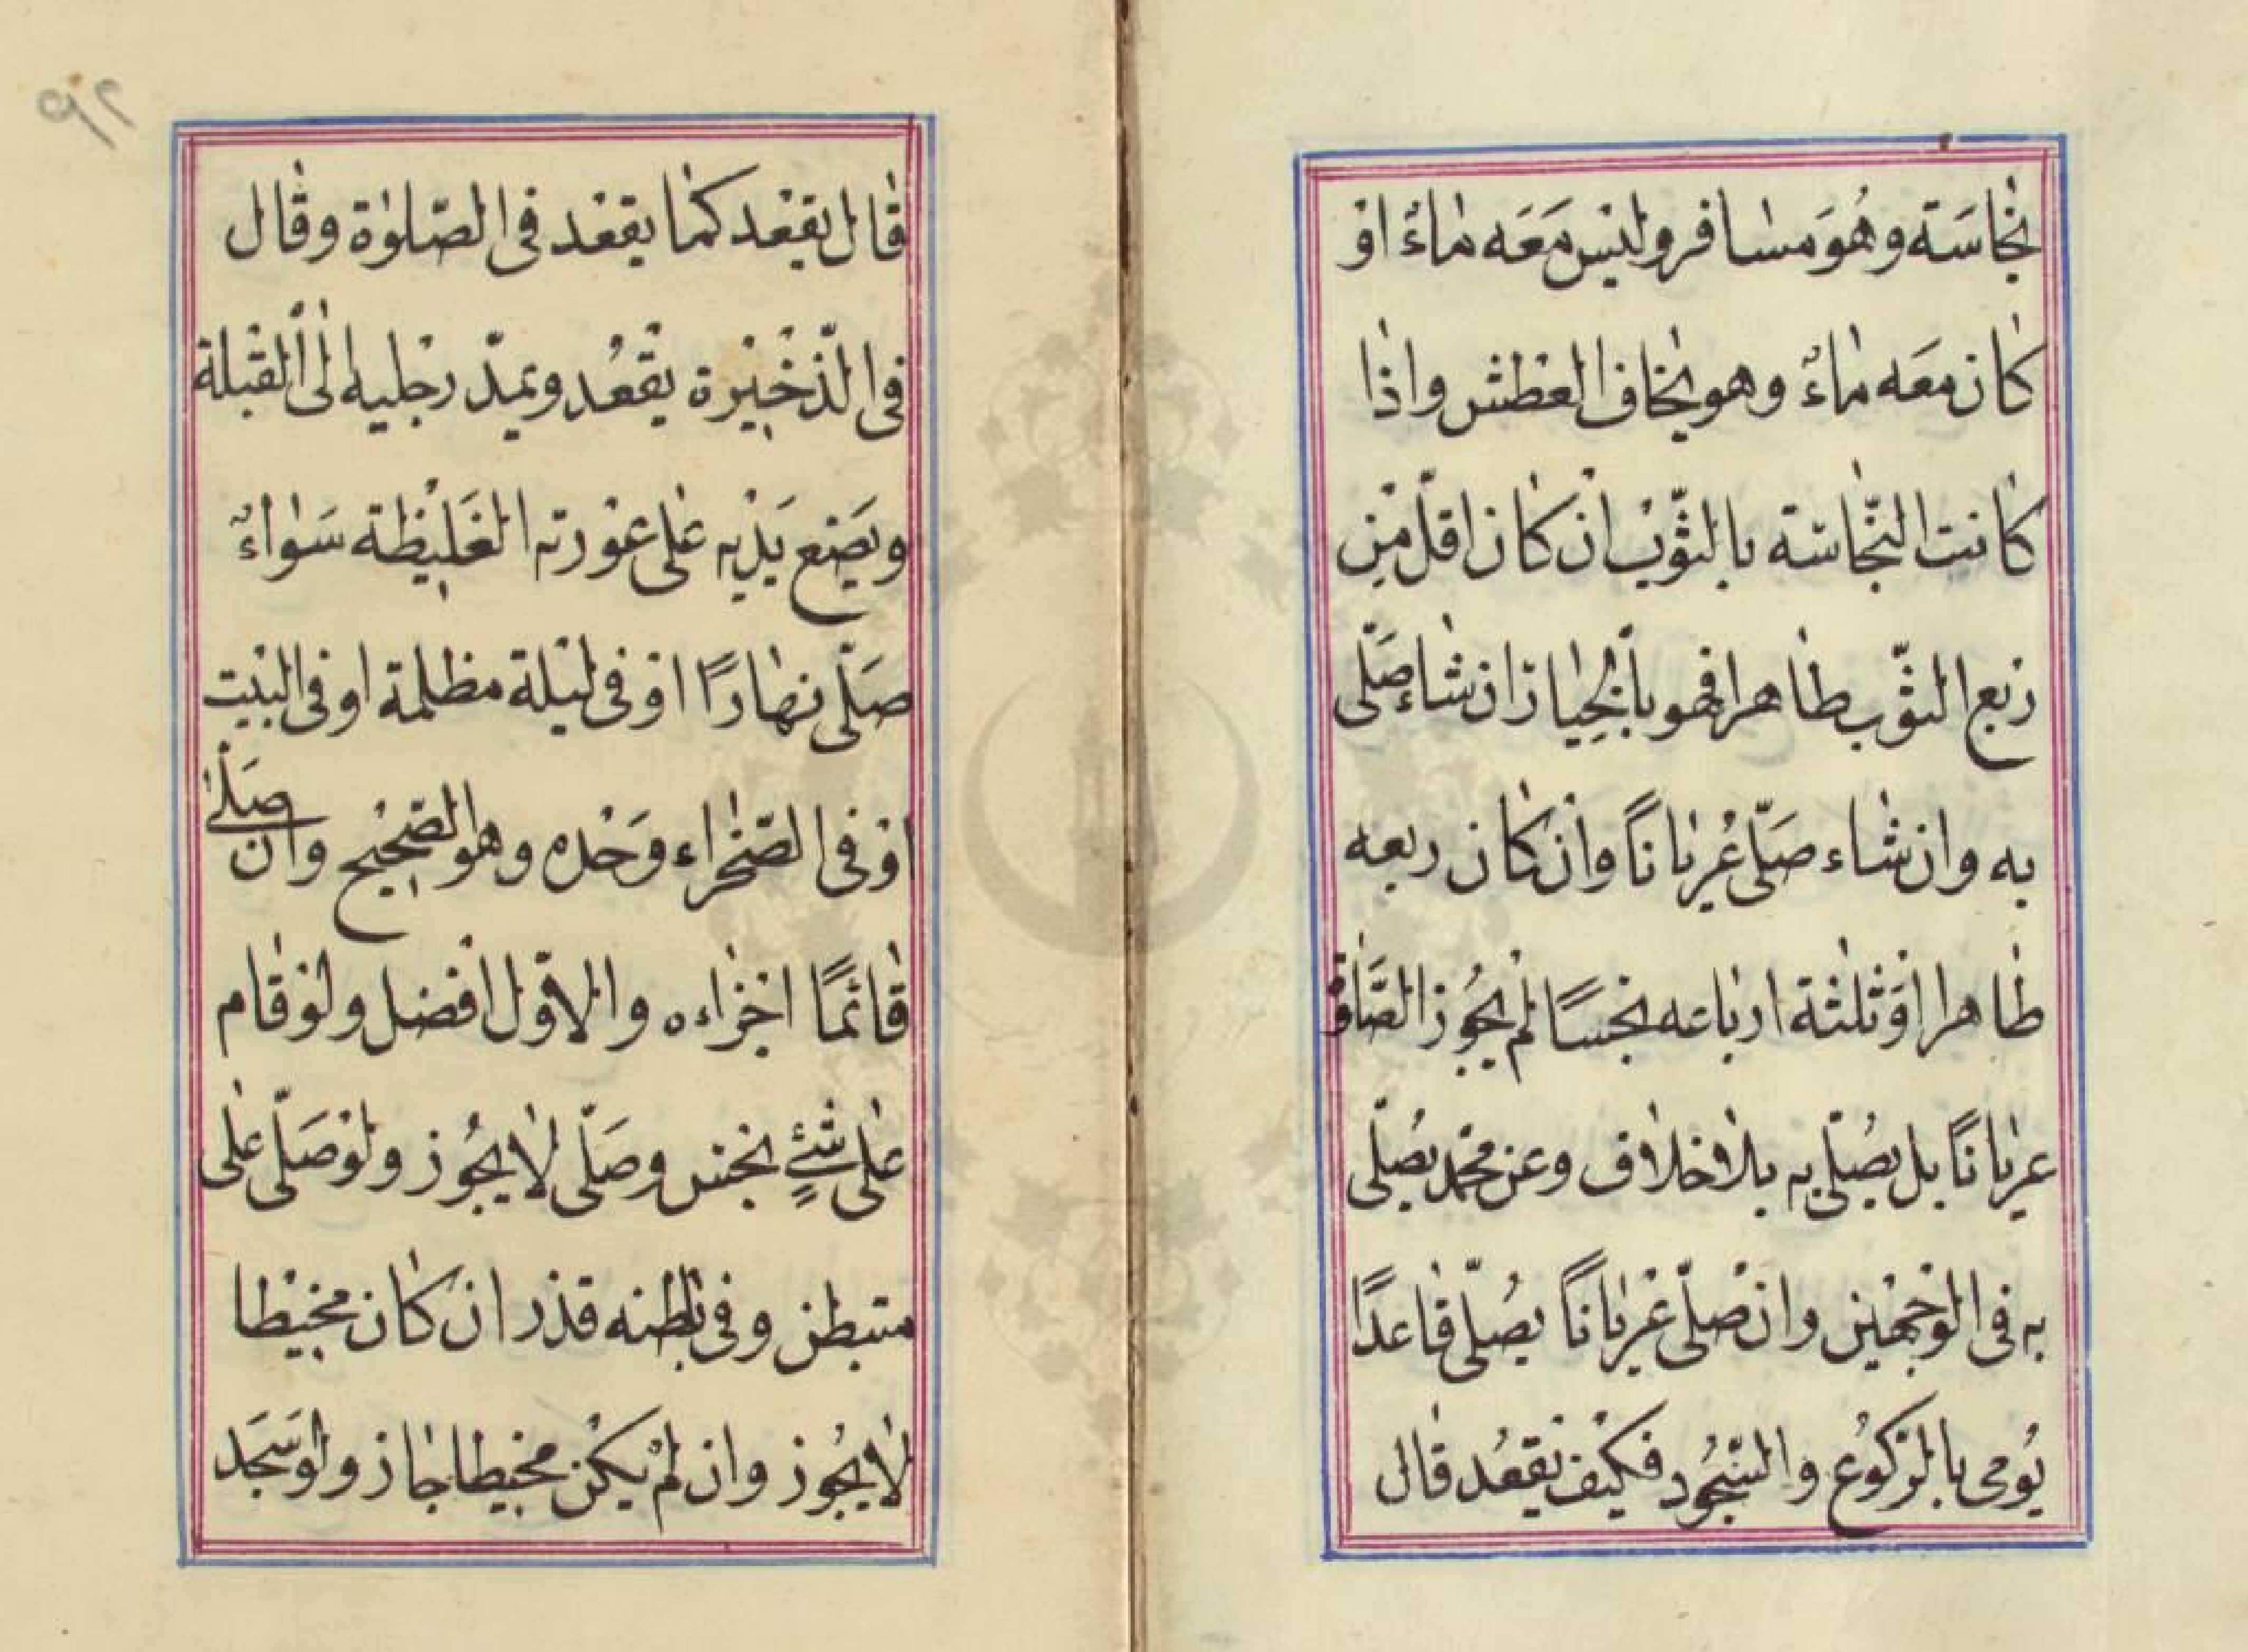 نجاسة وهو مسافر وليس معه ماء او
كان معه ماء وهو يخاف العطش واذا
كانت النجاسة بالثوب ان كان اقل من
ربع الثوب طاهرا فهو بالخيار ان شاء صلى
به وان شاء صلى عريانا وان كان ربعه
طاهرا او ثلثة ارباعه نجسا لم يجوز الصلوة
عريانا بل يصلى به بلا خلاف وعن محمد يصلى
به فى الوجهين وان صلى عريانا يصلى قاعدا
يومى بالركوع والسجود فكيف يقعد قال
٩٢
قال يقعد كما يقعد فى الصلوة وقال
فى الذخيرة يقعد ويمد رجليه الى القبلة
ويضع يديه على عورته الغليظة سواء
صلى نهارا او فى ليلة مظلمة او فى البيت
او فى الصحراء وحده وهو الصحيح وان صلى
قائما اجزاءه والاول افضل ولو قام
على شئ نجس وصلى لا يجوز ولو صلى على
متبطن وفى بطنه قذر ان كان مخيطا
لا يجوز وان لم يكن مخيطا جاز ولو سجد